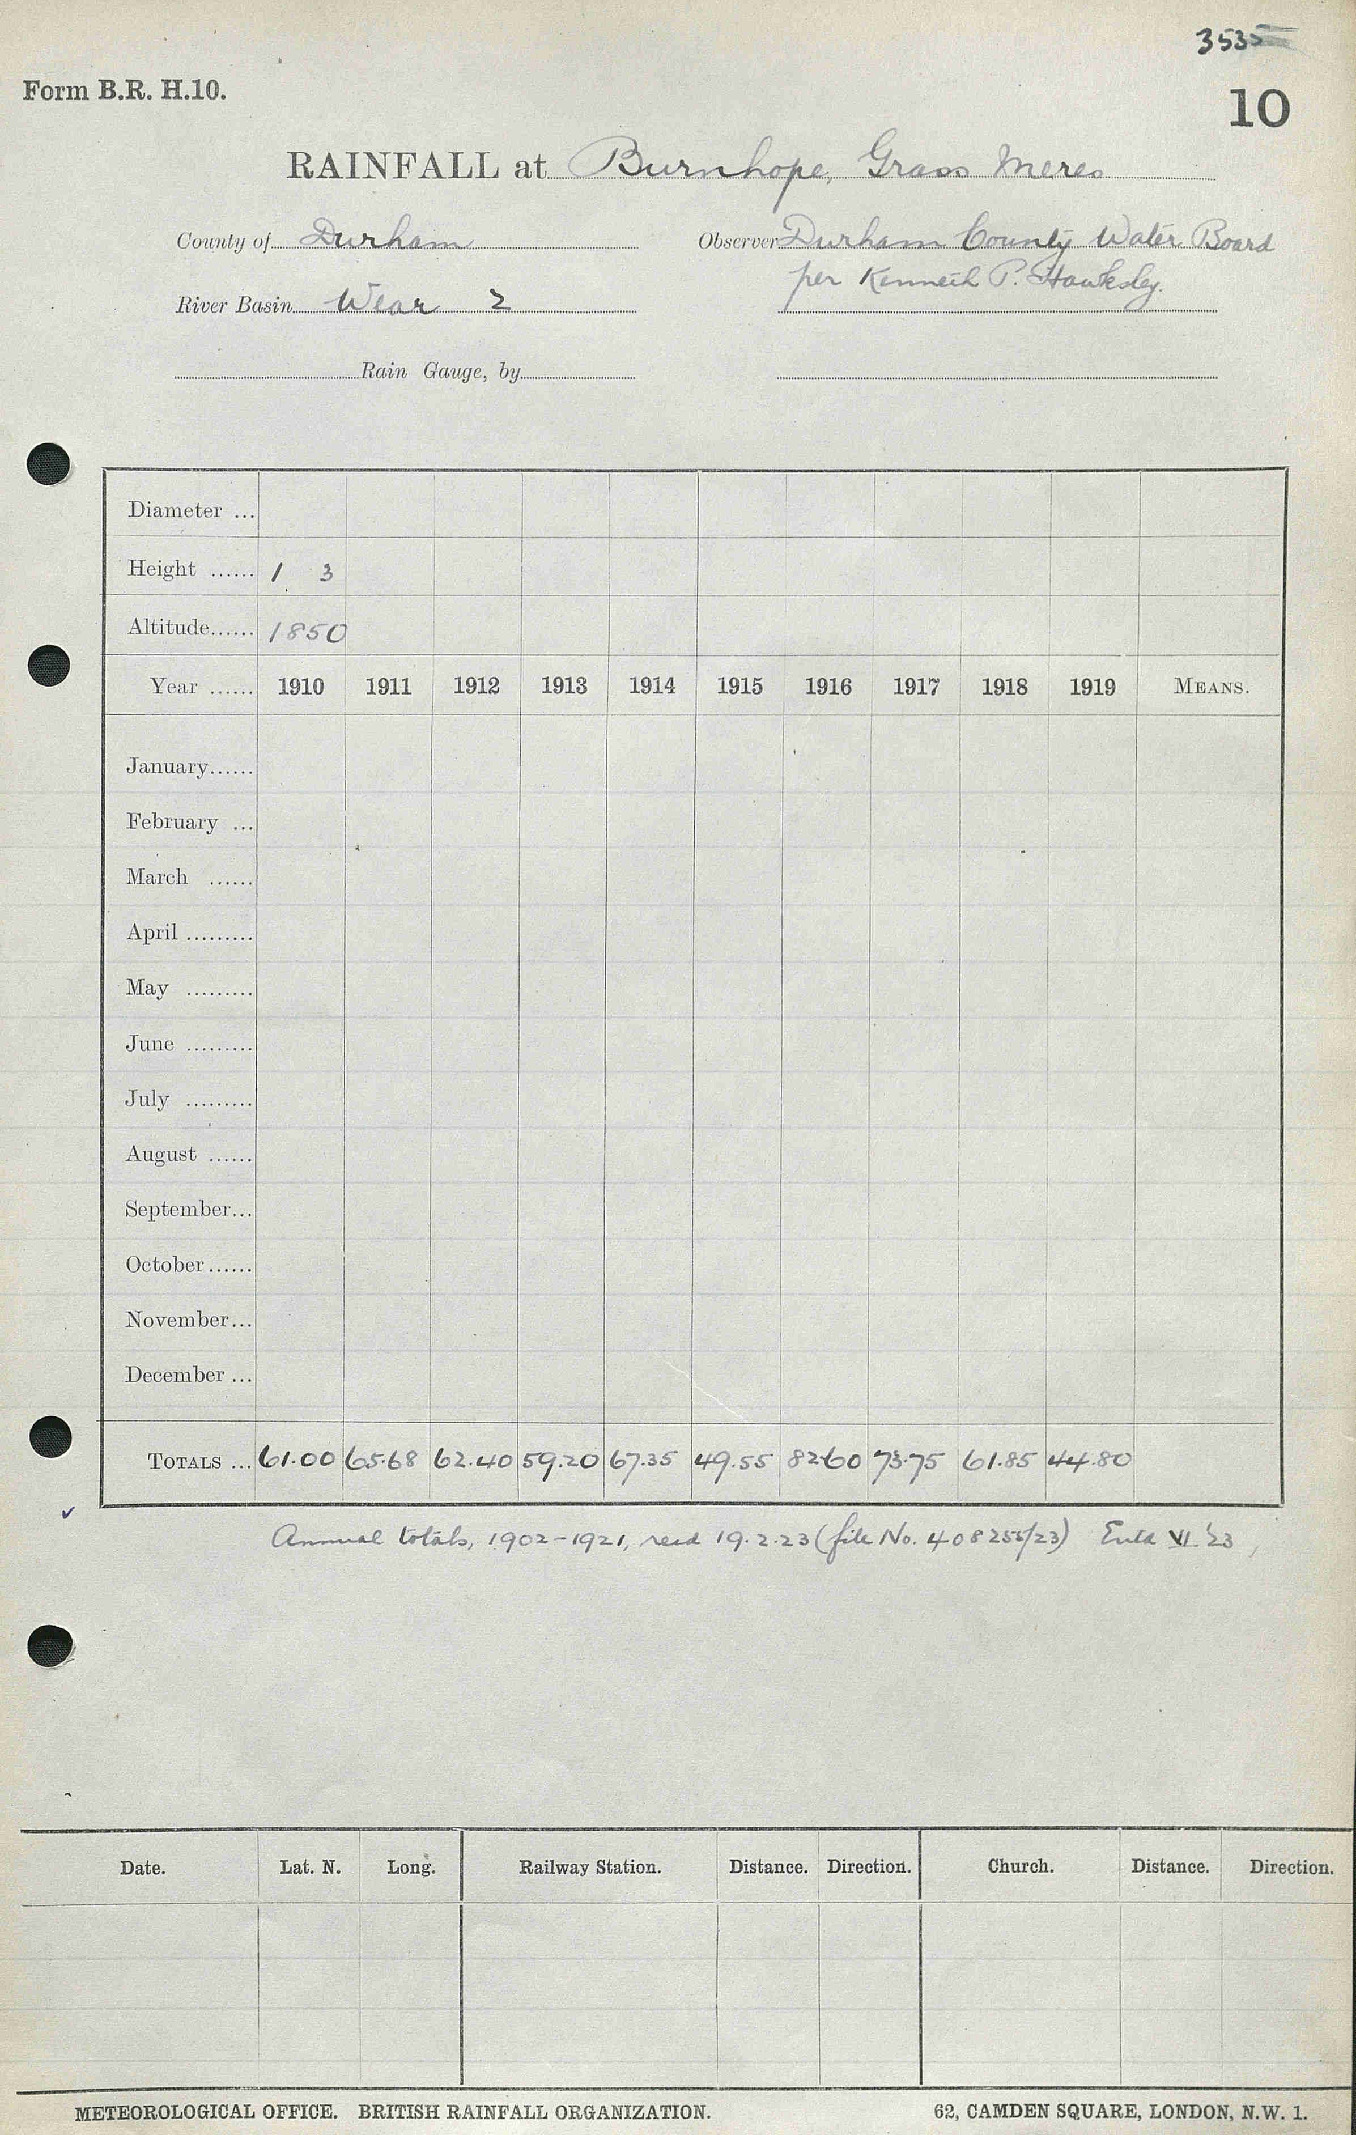 3535
Form B.R. H.10.
10
RAINFALL at Burnhope, Grass Meres
County of Durham Observer Durham County Water Board
per Kenneth P. Hawksley.
River Basin Wear 2
Rain Gauge, by
Diameter ...
Height ...... 1 3
Altitude...... 1850
Year ...... 1910 1911 1912 1913 1914 1915 1916 1917 1918 1919 MEANS.
January......
February ...
March ......
April .........
May .........
June .........
July .........
August ......
September...
October......
November...
December ...
TOTALS ... 61.00 65.68 62.40 59.20 67.35 49.55 82.60 73.75 61.85 44.80
Annual totals, 1902-1921, recd 19.2.23 (file No. 408255/23) Entd VI '23
Date. Lat. N. Long. Railway Station. Distance. Direction. Church. Distance. Direction.
METEOROLOGICAL OFFICE. BRITISH RAINFALL ORGANIZATION. 62, CAMDEN SQUARE, LONDON, N.W. 1.